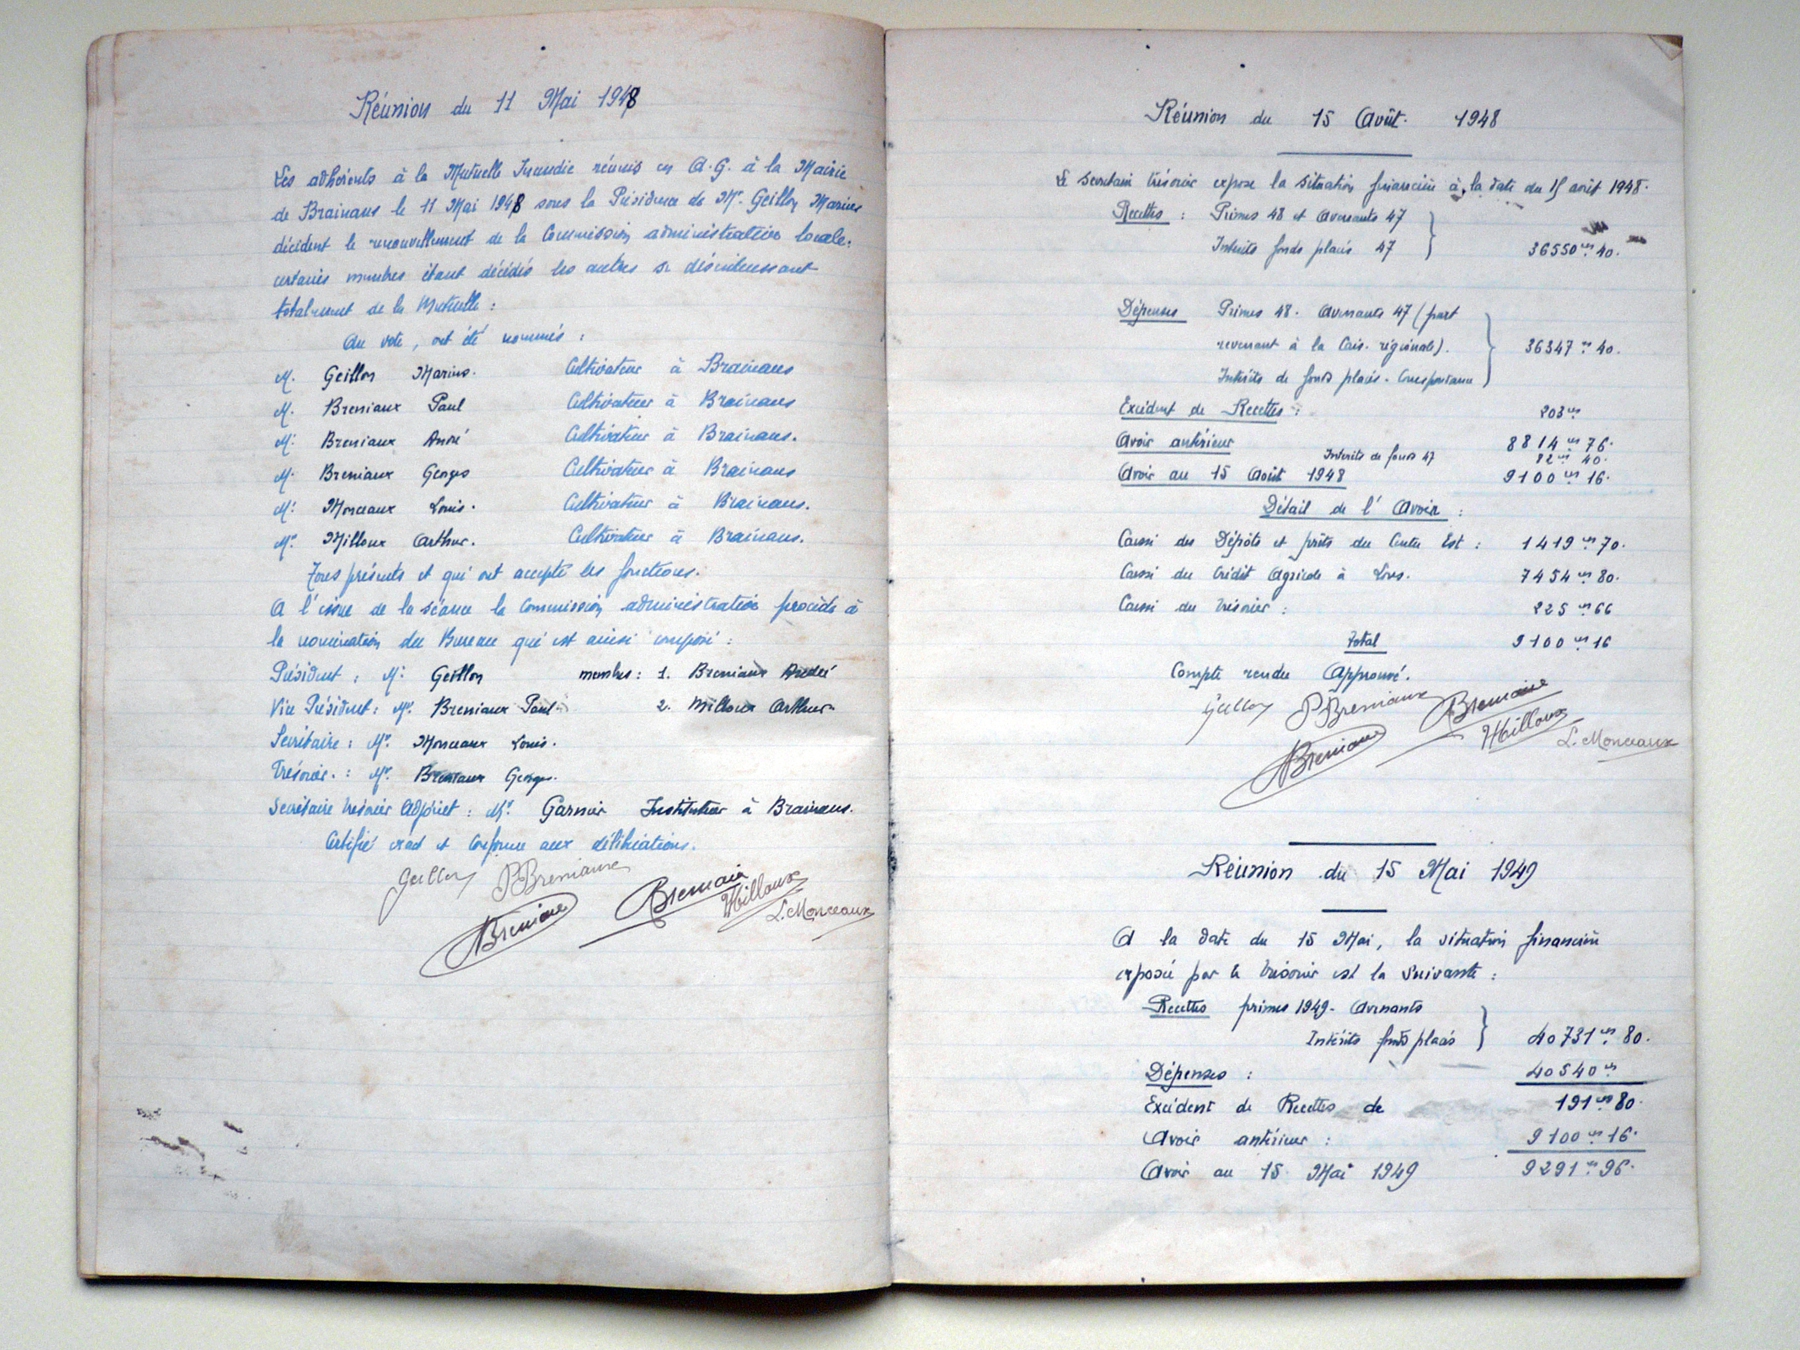 Réunion du 11 Mai 1948
Les adhérents à la Mutuelle Incendie réunis en A.G. à la Mairie
de Brainans le 11 Mai 1948 sous la Présidence de Mr. Geillon Marius
décident le renouvellement de la Commission administrative locale.
certains membres étant décédés les autres se désintéressant
totalement de la Mutuelle :
Au vote, ont été nommés :
M. Geillon Marius. Cultivateur à Brainans
M. Breniaux Paul Cultivateur à Brainans
M. Breniaux André Cultivateur à Brainans.
M. Breniaux Georges Cultivateur à Brainans
M. Monceaux Louis. Cultivateur à Brainans.
M. Milloux Arthur. Cultivateur à Brainans.
Tous présents et qui ont accepté les fonctions.
A l'issue de la séance la Commission administrative procède à
la nomination du Bureau qui est ainsi composé :
Président : Mr. Geillon membres : 1. Breniaux André
Vice Président : Mr. Breniaux Paul 2. Milloux Arthur
Secrétaire : Mr. Monceaux Louis.
Trésorier. : Mr. Breniaux Georges.
Secrétaire trésorier Adjoint : Mr. Garnier Instituteur à Brainans.
Certifié exact et conforme aux délibérations.
Geillon P. Breniaux Breniaux Milloux
Breniaux L. Monceaux
Réunion du 15 Août. 1948
Le secrétaire trésorier expose la situation financière à la date du 15 août 1948.
Recettes : Primes 48 et avenants 47
Intérêts fonds placés 47 36550 frs 40.
Dépenses Primes 48. avenants 47 (part
revenant à la Cais. régionale). 36347 frs 40.
Intérêts de fonds placés. Correspondance
Excédent de Recettes : 203 frs
Avoir antérieur 8814 frs 76.
Intérêts de fonds 47 82 frs 40.
Avoir au 15 Août 1948 9100 frs 16.
Détail de l'Avoir :
Caisse des Dépôts et prêts du Centre Est : 1419 frs 70.
Caisse du Crédit Agricole à Lons. 7454 frs 80.
Caisse du trésorier : 225 frs 66
Total 9100 frs 16
Compte rendu Approuvé.
Geillon P. Breniaux Breniaux
Breniaux Milloux L. Monceaux
Réunion du 15 Mai 1949
A la date du 15 Mai, la situation financière
exposée par le trésorier est la suivante :
Recettes primes 1949 - avenants
Intérêts fonds placés 40731 frs 80.
Dépenses : 40540 frs
Excédent de Recettes de 191 frs 80.
Avoir antérieur : 9100 frs 16.
Avoir au 15 Mai 1949 9291 frs 96.